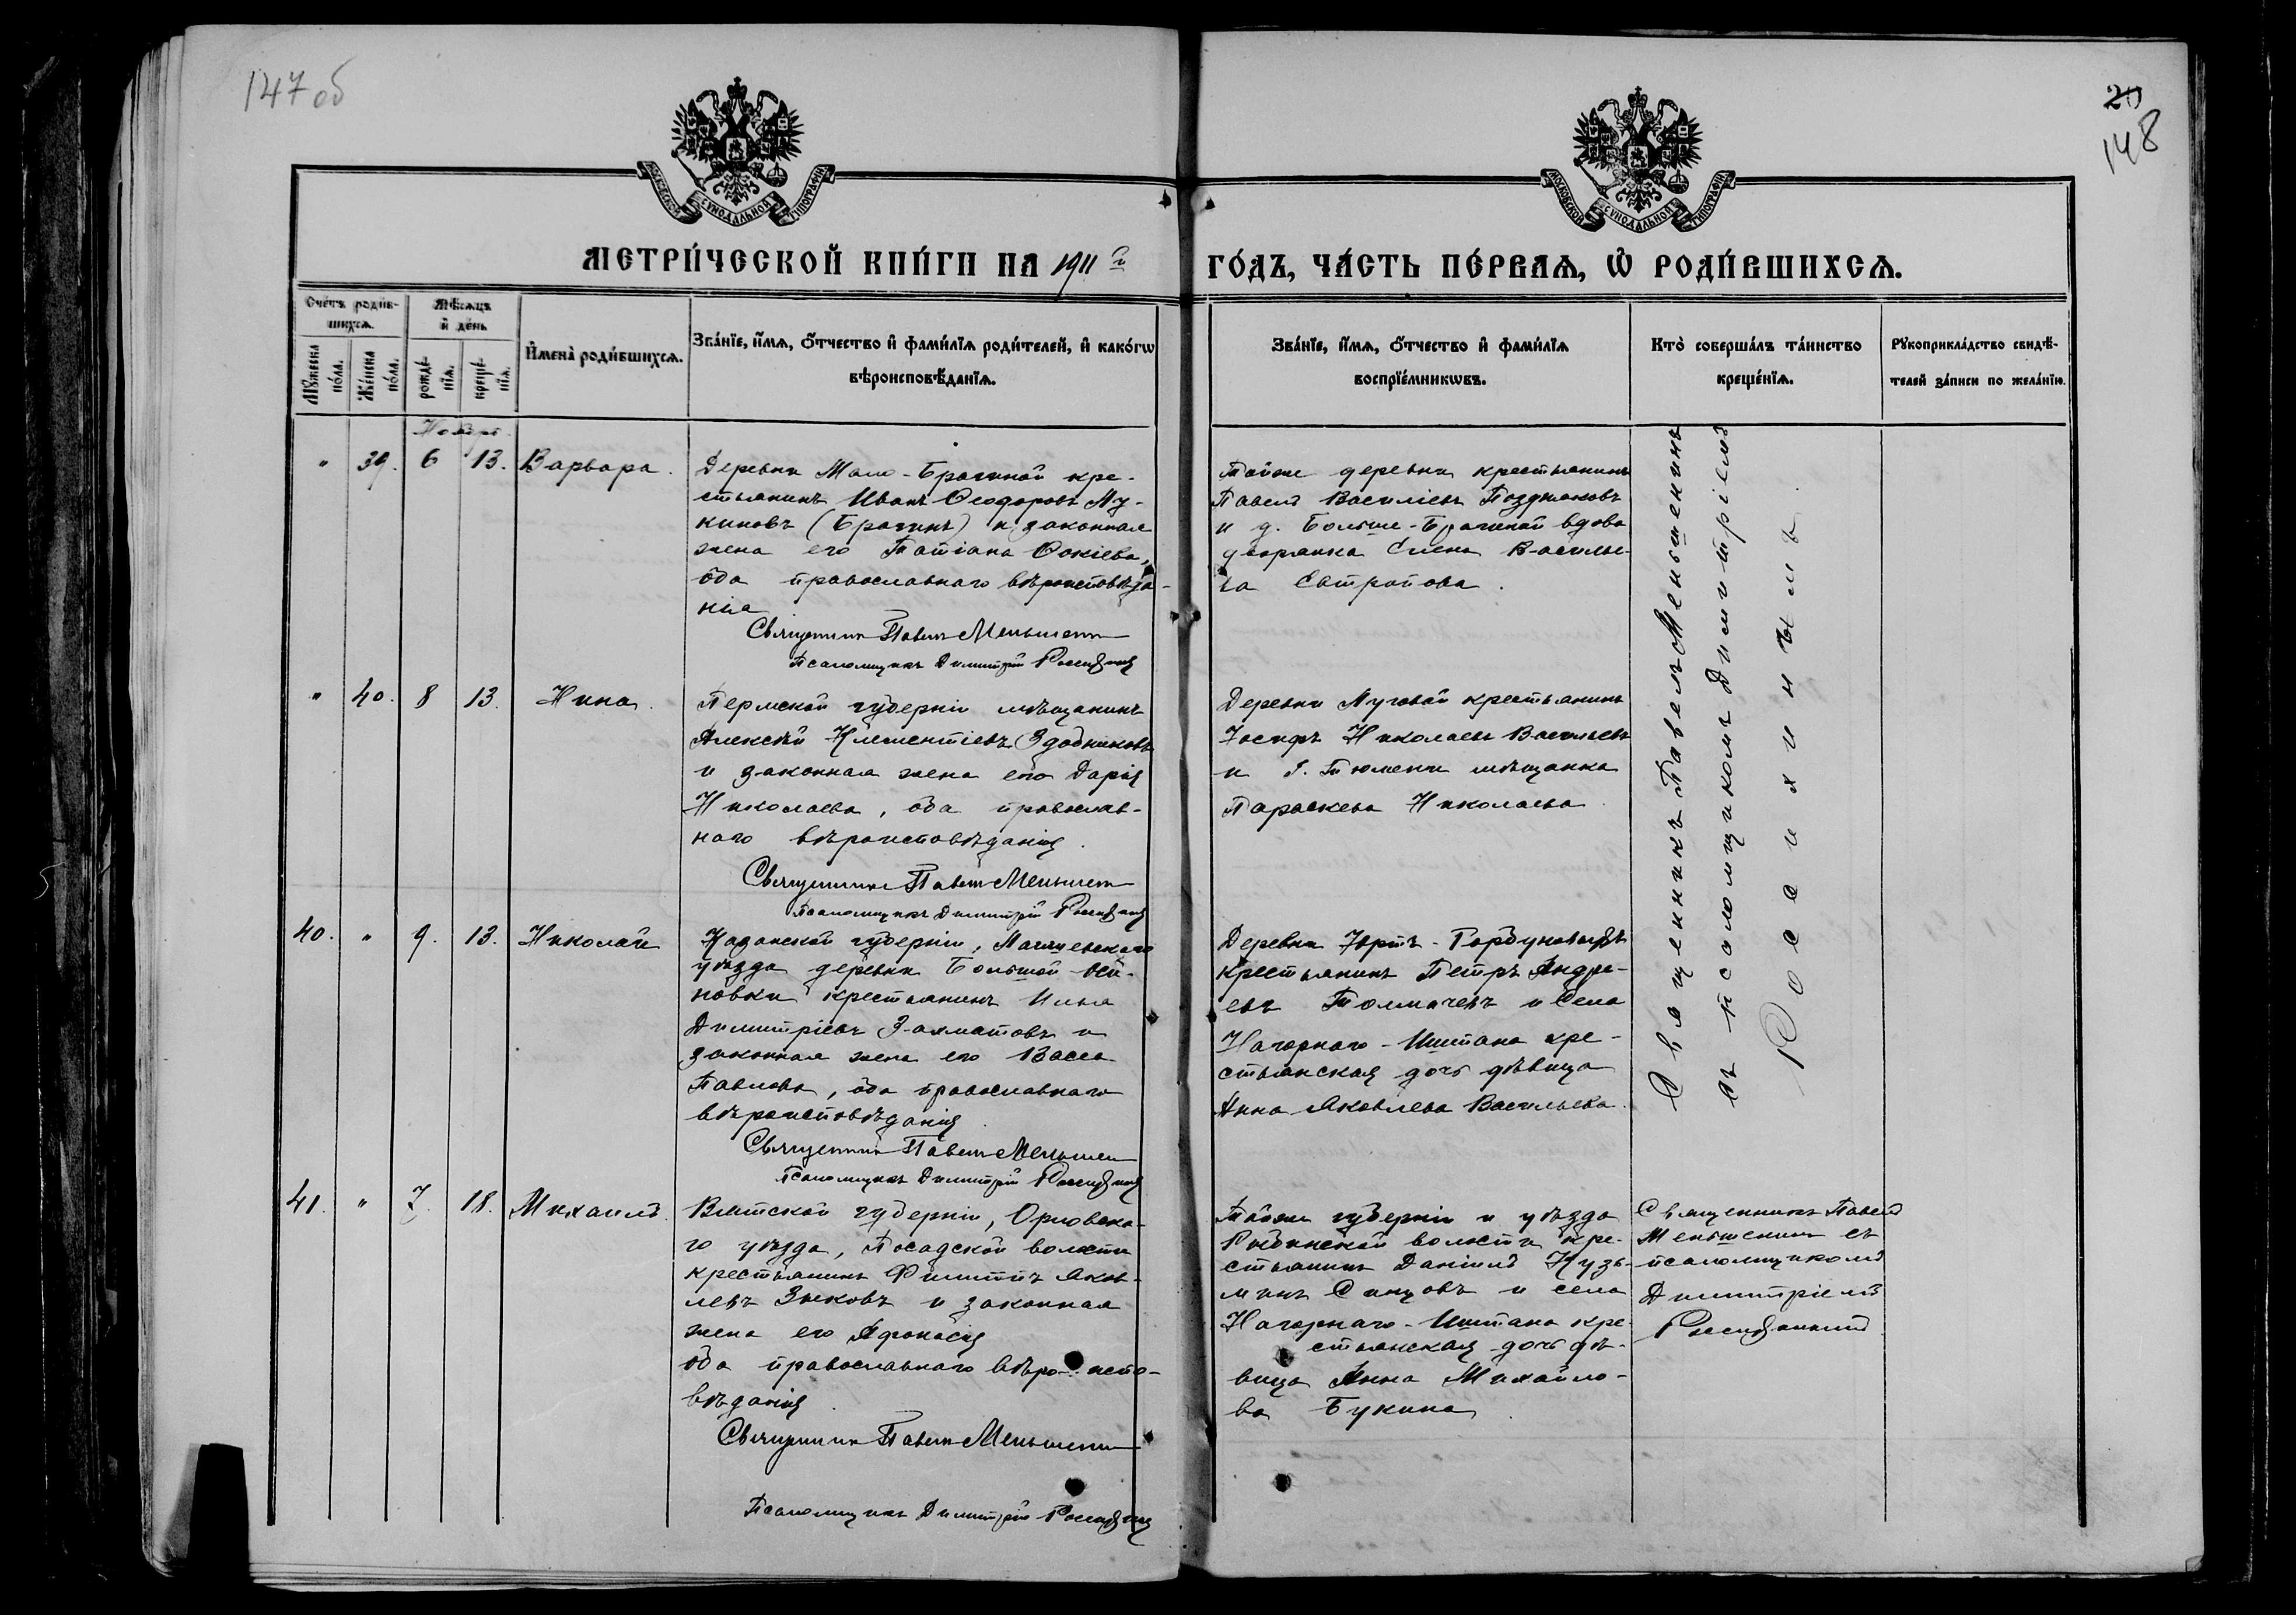 147 об
20
148
МОСКОВСКОЙ СѴНОДАЛЬНОЙ ТИПОГРАФІИ
МОСКОВСКОЙ СѴНОДАЛЬНОЙ ТИПОГРАФІИ
МЕТРИ́ЧЕСКОЙ КНИ́ГИ НА 1911 й
ГО́ДЪ, ЧА́СТЬ ПЕ́РВАЯ, Ѡ҆ РОДИ́ВШИХСЯ.
Сче́тъ роди́в-
шихся.
Мѣ́сяцъ
и҆ де́нь
Мꙋ́жеска по́ла.
Же́нска по́ла.
рожде́-
нїя.
креще́-
нїя.
И҆мена̀ роди́вшихся.
Зва́нїе, и҆́мя, ѻ҆́тчество и҆ фами́лїя роди́телей, и҆ како́гѡ
вѣроисповѣ́данїя.
Зва́нїе, и҆́мя, ѻ҆́тчество и҆ фами́лїя
воспрїе́мникѡвъ.
Кто̀ соверша́лъ та́инство
креще́нїя.
Рꙋкоприкла́дство свидѣ́-
телей за́писи по жела́нїю.
Ноябрь.
" 39. 6 13. Варвара.
Деревни Мало-Брагиной кре-
стьянинъ Иванъ Ѳеодоровъ
(Брагинъ) и законная
жена его Татіана
оба православнаго вѣроисповѣда-
нія
Священник Павелъ Меньшенин
Псаломщикъ Димитрій
Тойже деревни крестьянинъ
Павелъ Василіевъ
и д. Больше-Брагиной вдова
дворянка Елена Василье-
ва Сатрапова.
" 40. 8 13. Нина.
Пермской губерніи мѣщанинъ
Алексѣй Клементіевъ Здобниковъ
и законная жена его Дарія
Николаева, оба православ-
наго вѣроисповѣданія.
Священник Павелъ Меньшенин
Псаломщикъ Димитрій
Деревни Луговой крестьянинъ
Іосифъ Николаевъ Васильевъ
и г. Тюмени мѣщанка
Параскева Николаева.
40. " 9. 13. Николай
Казанской губерніи,
уѣзда деревни Большой Оси-
новки крестьянинъ Илья
Димитріевъ Захматовъ и
законная жена его Васса
Павлова, оба православнаго
вѣроисповѣданія.
Священник Павелъ Меньшенин
Псаломщикъ Димитрій
Деревни Юртъ-Горбуновскихъ
крестьянинъ Петръ Андре-
евъ Толмачевъ и села
Нагорнаго-Иштана кре-
стьянская дочь дѣвица
Анна Яковлева Васильева.
Священникъ Павелъ Меньшенинъ
съ псаломщикомъ Димитріемъ
41. " 7. 18. Михаилъ.
Вятской губерніи, Орловска-
го уѣзда, Посадской волости
крестьянинъ Филиппъ Яков-
левъ Зыковъ и законная
жена его Афанасія
оба православнаго вѣро-испо-
вѣданія.
Священник Павелъ Меньшенин
Псаломщикъ Димитрій
Тойже губерніи и уѣзда
волости кре-
стьянинъ Даніилъ Кузь-
минъ Сунцовъ и села
Нагорнаго-Иштана кре-
стьянская дочь дѣ-
вица Анна Михайло-
ва Букина.
Священникъ Павелъ
Меньшенинъ съ
псаломщикомъ
Димитріемъ